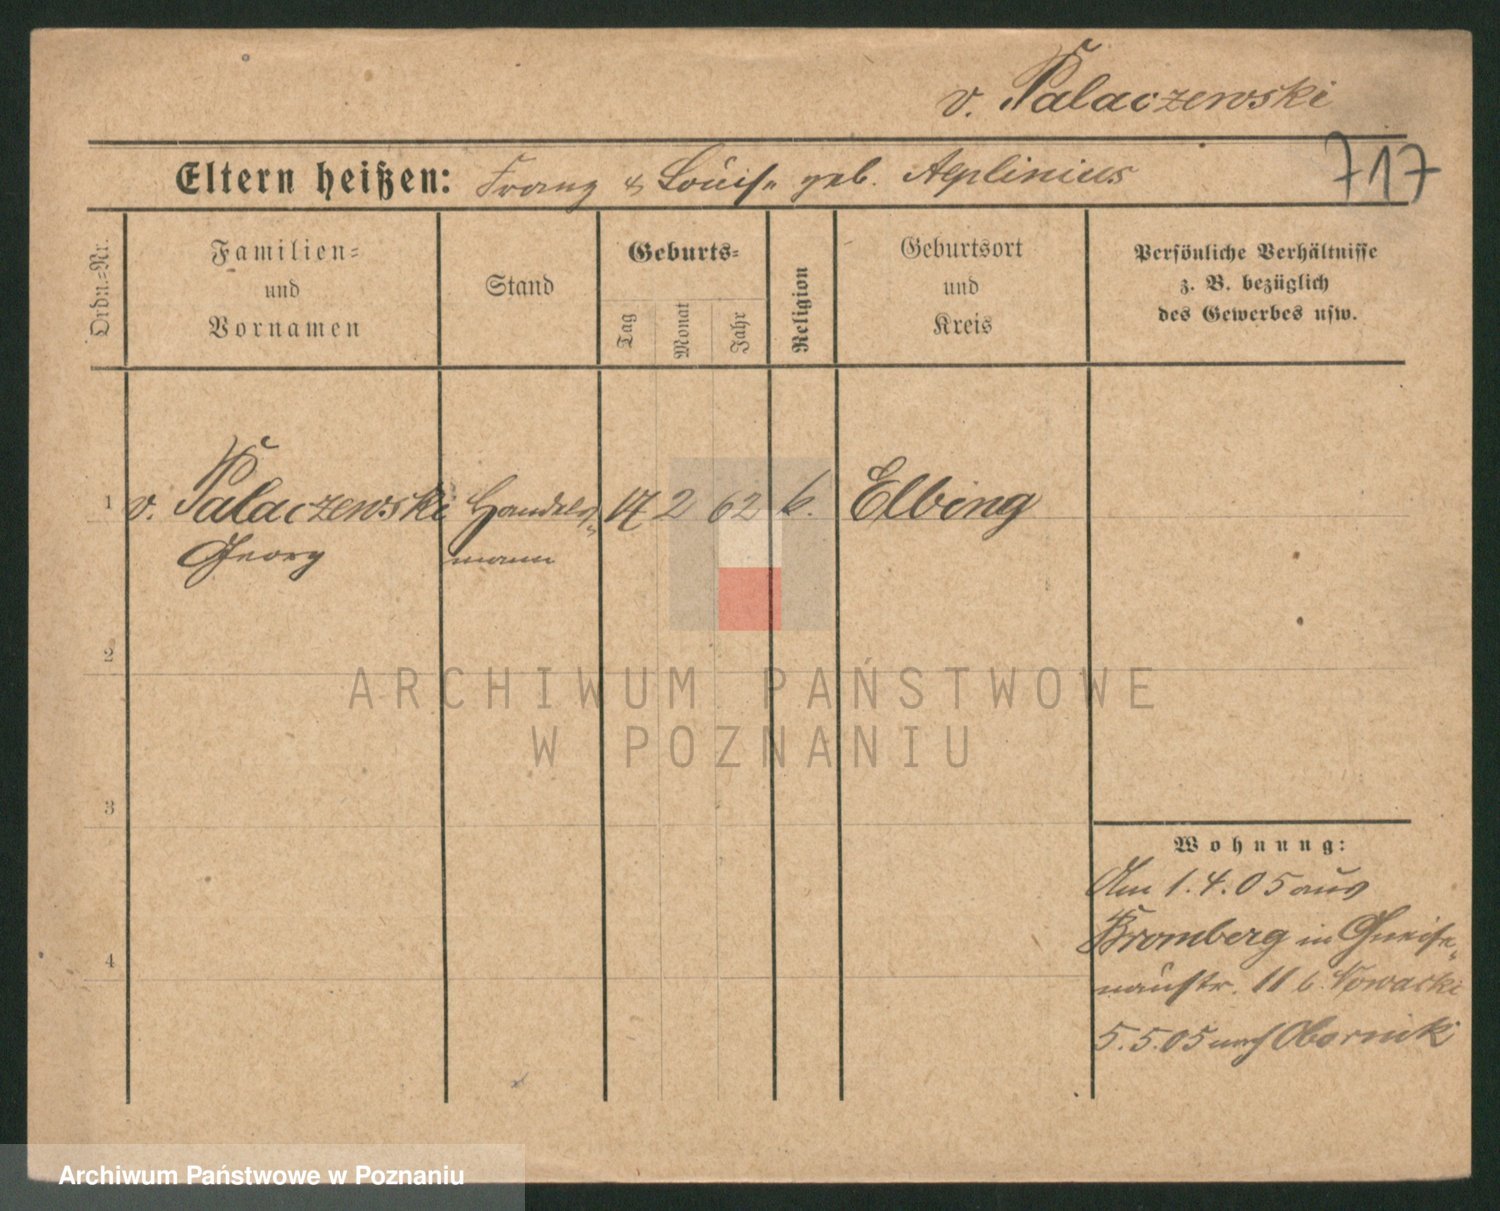 v. Palaczewski
717
Eltern heißen: Franz & Louise geb. Aeplinius
Ordn.=Nr.
Familien=
und
Vornamen
Stand
Geburts=
Tag
Monat
Jahr
Religion
Geburtsort
und
Kreis
Persönliche Verhältnisse
z. B. bezüglich
des Gewerbes usw.
1 v. Palaczewski Handels= 17 2 62 k. Elbing
Georg mann
2
3
4
Wohnung:
Am 1.4.05 aus
Bromberg in Gneise=
naustr. 11 b. Nowacki
5.5.05 nach Obornik
ARCHIWUM PAŃSTWOWE
W POZNANIU
Archiwum Państwowe w Poznaniu